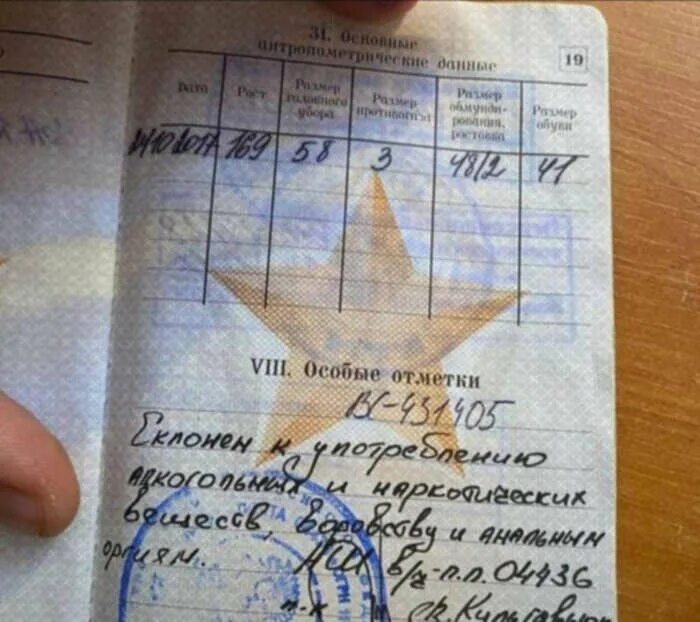 31. Основные
антропометрические данные
19
Дата
Рост
Размер головного убора
Размер противогаза
Размер обмундирования, ростовка
Размер обуви
169 58 3 48/2 41
VIII. Особые отметки
ВГ-431405
Склонен к употреблению
алкогольных и наркотических
веществ, воровству и анальным
оргиям. НШ в/ч-п.п. 04436
п-к